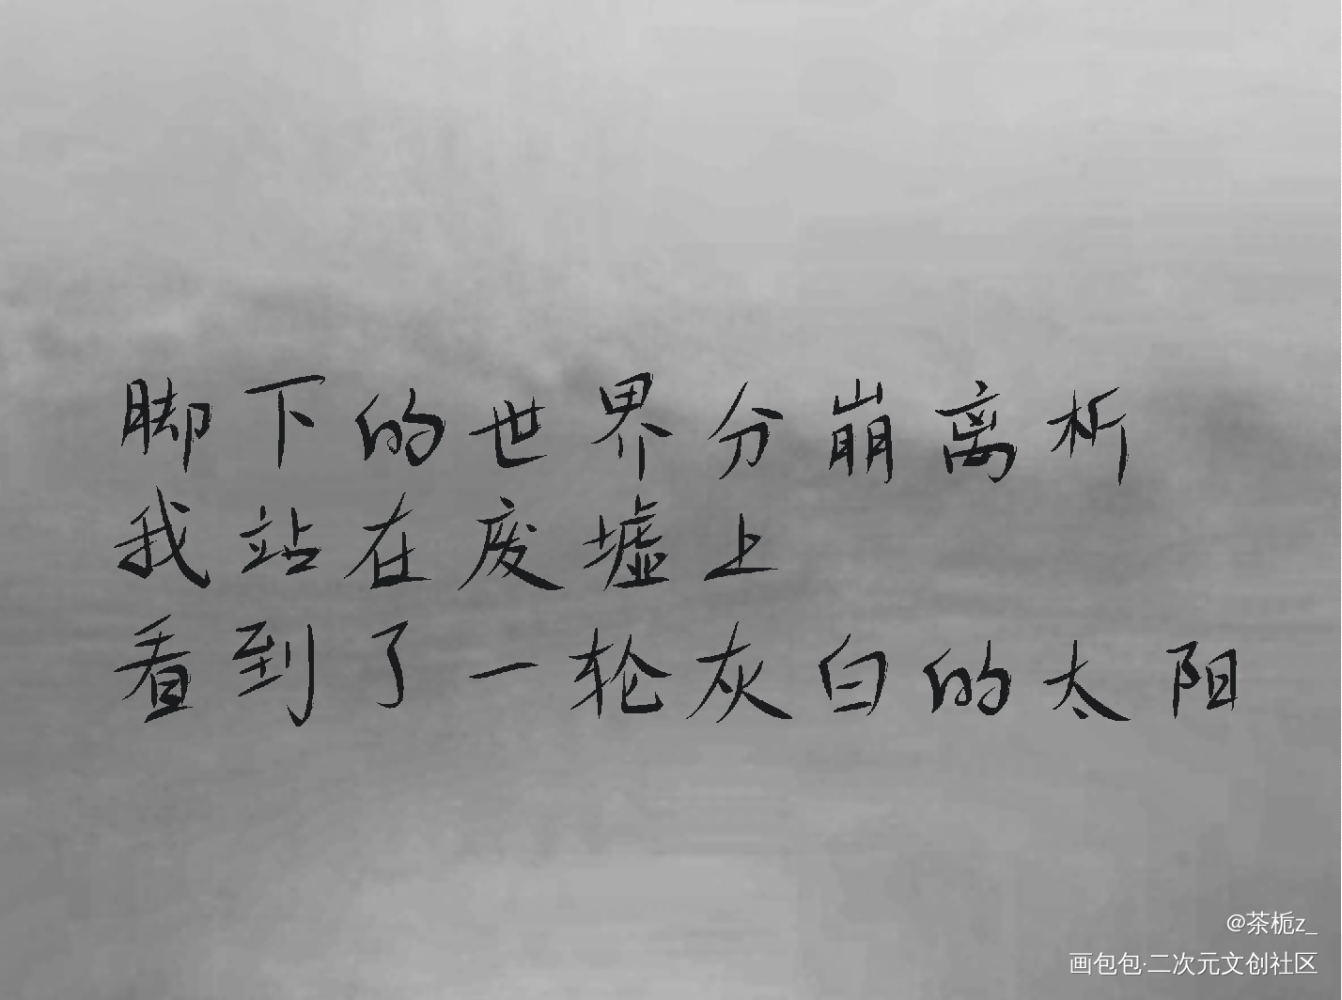 脚下的世界分崩离析
我站在废墟上
看到了一轮灰白的太阳
@茶栀z_
画包包·二次元文创社区